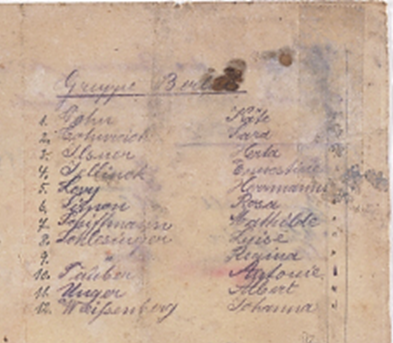 Gruppe Berlin
1. Käte
2. Sara
3. Elsner Herta
4. Ernestine
5. Levy Hermann
6. Simon Rosa
7. Schiffmann Mathilde
8. Schlesinger Luise
9. Regina
10. Täuber Antonie
11. Unger Albert
12. Weißenberg Johanna